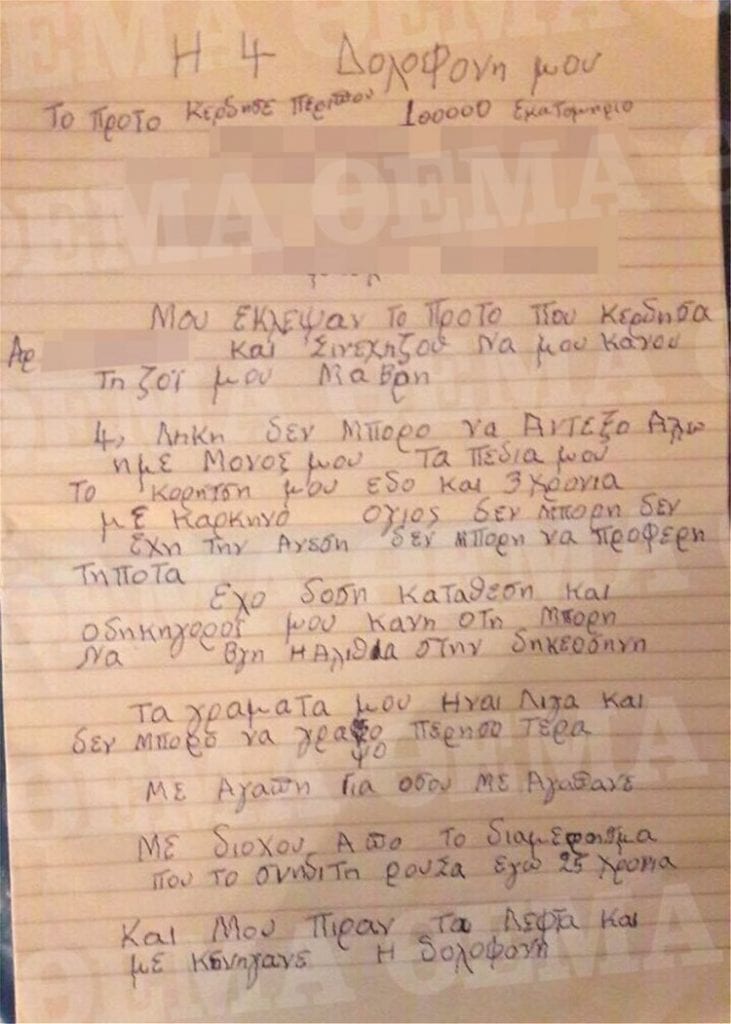 Η 4 Δολοφονη μου
Το Προτο Κερδησε Περιπου 100000 Εκατομηριο
Μου Εκλεψαν το Προτο Που Κερδησα
Αρ και Σινεχηζου να μου κανου
Τη ζοϊ μου Μαβρη
4, Λήκη δεν Μπορο να Αντεξο Αλω
ημε Μονος μου Τα Πεδια μου
Το κορητση μου εδο και 3 χρονια
με Καρκηνο Ογιος δεν Μπορη δεν
εχη την Ανεση δεν Μπορη να προφερη
Τηποτα
Εχο δοση καταθεση και
οδηκηγορος μου κανη οτη Μπορη
Να Βγη Η Αλιθια στην δηκεοσηνη
Τα γραματα μου Ηναι Λιγα και
δεν Μπορο να γραψο Περησο Τερα
Με Αγαπη Για οσου Με Αγαπανε
Με διοχου Απο το διαμερησμα
που το συνδιτη ρουσα εγω 25 χρονια
Και Μου Πιραν Τα Λεφτα και
με Κυνηγανε Η δολοφονη
ΘΕΜΑ ΘΕΜΑ